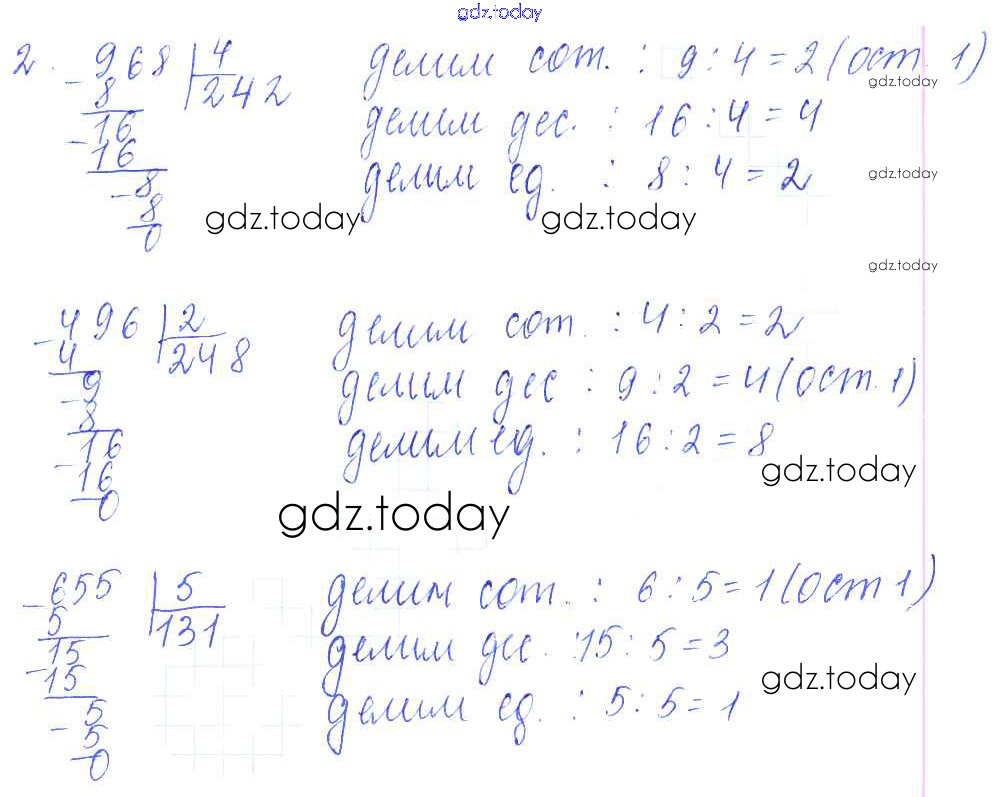 gdz.today
2. - 968 | 4 делим сот. : 9 : 4 = 2 (ост. 1)
8 242 gdz.today
- 16 делим дес. : 16 : 4 = 4
16
- 8 делим ед. : 8 : 4 = 2 gdz.today
8 gdz.today gdz.today
0
gdz.today
- 496 | 2 делим сот. : 4 : 2 = 2
4 248
- 9 делим дес : 9 : 2 = 4 (ост. 1)
8
- 16 делим ед. : 16 : 2 = 8
16 gdz.today
0 gdz.today
- 655 | 5 делим сот. : 6 : 5 = 1 (ост 1)
5 131
- 15 делим дес. : 15 : 5 = 3
15 gdz.today
- 5 делим ед. : 5 : 5 = 1
5
0